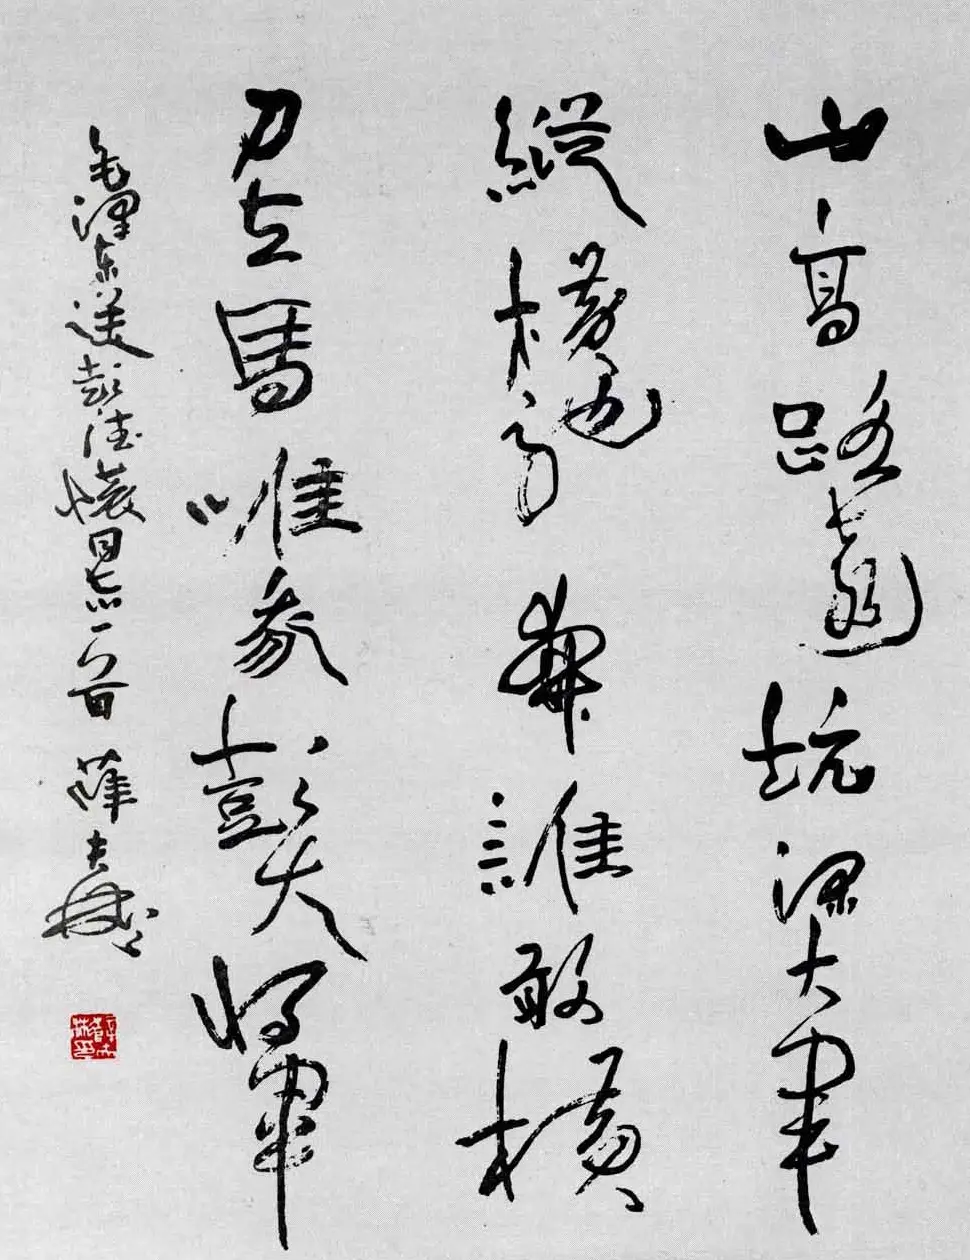 山高路遠坑深大軍
縱橫馳奔誰敢橫
刀立馬唯我彭大將軍
毛澤東送彭德懷同志一首 薛夫彬